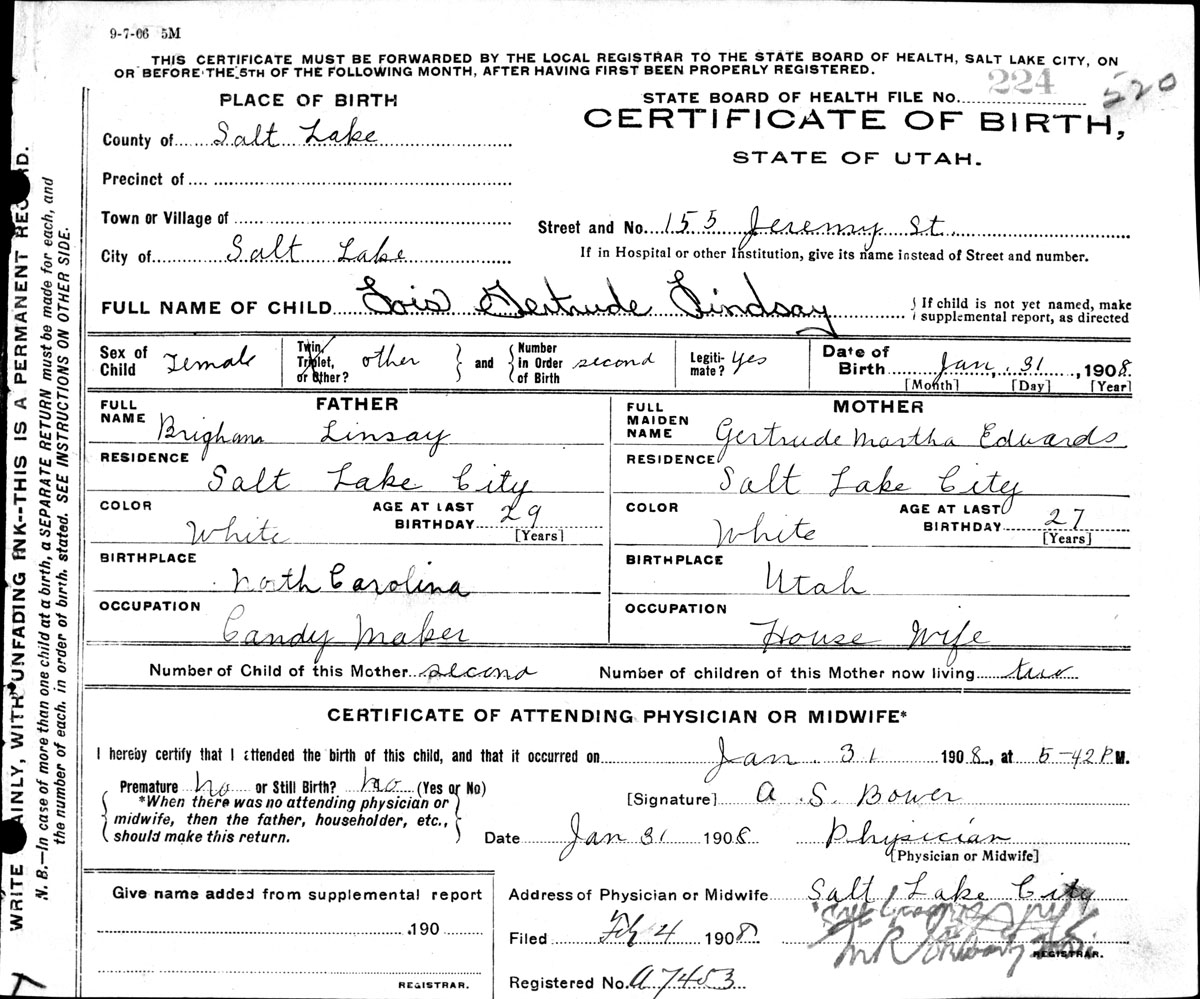 9-7-06 5M
THIS CERTIFICATE MUST BE FORWARDED BY THE LOCAL REGISTRAR TO THE STATE BOARD OF HEALTH, SALT LAKE CITY, ON
OR BEFORE THE 5TH OF THE FOLLOWING MONTH, AFTER HAVING FIRST BEEN PROPERLY REGISTERED.
PLACE OF BIRTH
STATE BOARD OF HEALTH FILE No. 224 520
CERTIFICATE OF BIRTH,
STATE OF UTAH.
County of Salt Lake
Precinct of
Town or Village of
Street and No. 155 Jeremy St.
City of Salt Lake
If in Hospital or other Institution, give its name instead of Street and number.
FULL NAME OF CHILD Lois Gertrude Lindsay
{ If child is not yet named, make
supplemental report, as directed
Sex of Child Female
Twin, Triplet, or Other? other
and
Number in Order of Birth second
Legiti-mate? Yes
Date of Birth Jan. 31, 1908.
[Month] [Day] [Year]
FATHER
FULL NAME Brigham Linsay
RESIDENCE Salt Lake City
COLOR White
AGE AT LAST BIRTHDAY 29
[Years]
BIRTHPLACE North Carolina
OCCUPATION Candy Maker
MOTHER
FULL MAIDEN NAME Gertrude Martha Edwards
RESIDENCE Salt Lake City
COLOR White
AGE AT LAST BIRTHDAY 27
[Years]
BIRTHPLACE Utah
OCCUPATION House Wife
Number of Child of this Mother second
Number of children of this Mother now living two
CERTIFICATE OF ATTENDING PHYSICIAN OR MIDWIFE*
I hereby certify that I attended the birth of this child, and that it occurred on Jan. 31 1908, at 5-42 P M.
Premature No or Still Birth? No (Yes or No)
*When there was no attending physician or
midwife, then the father, householder, etc.,
should make this return.
[Signature] A S. Bower
Date Jan 31 1908
Physician
[Physician or Midwife]
Give name added from supplemental report
190
REGISTRAR.
Address of Physician or Midwife Salt Lake City
Filed Feb 4 1908
REGISTRAR.
Registered No. A7453
WRITE PLAINLY, WITH UNFADING INK--THIS IS A PERMANENT RECORD.
N. B.—In case of more than one child at a birth, a SEPARATE RETURN must be made for each, and
the number of each, in order of birth, stated. SEE INSTRUCTIONS ON OTHER SIDE.